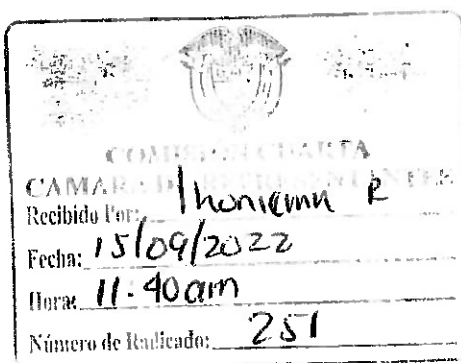 COMISION CUARTA
CAMARA DE REPRESENTANTES
Recibido Por: R
Fecha: 15/09/2022
Hora: 11-40am
Número de Radicado: 251